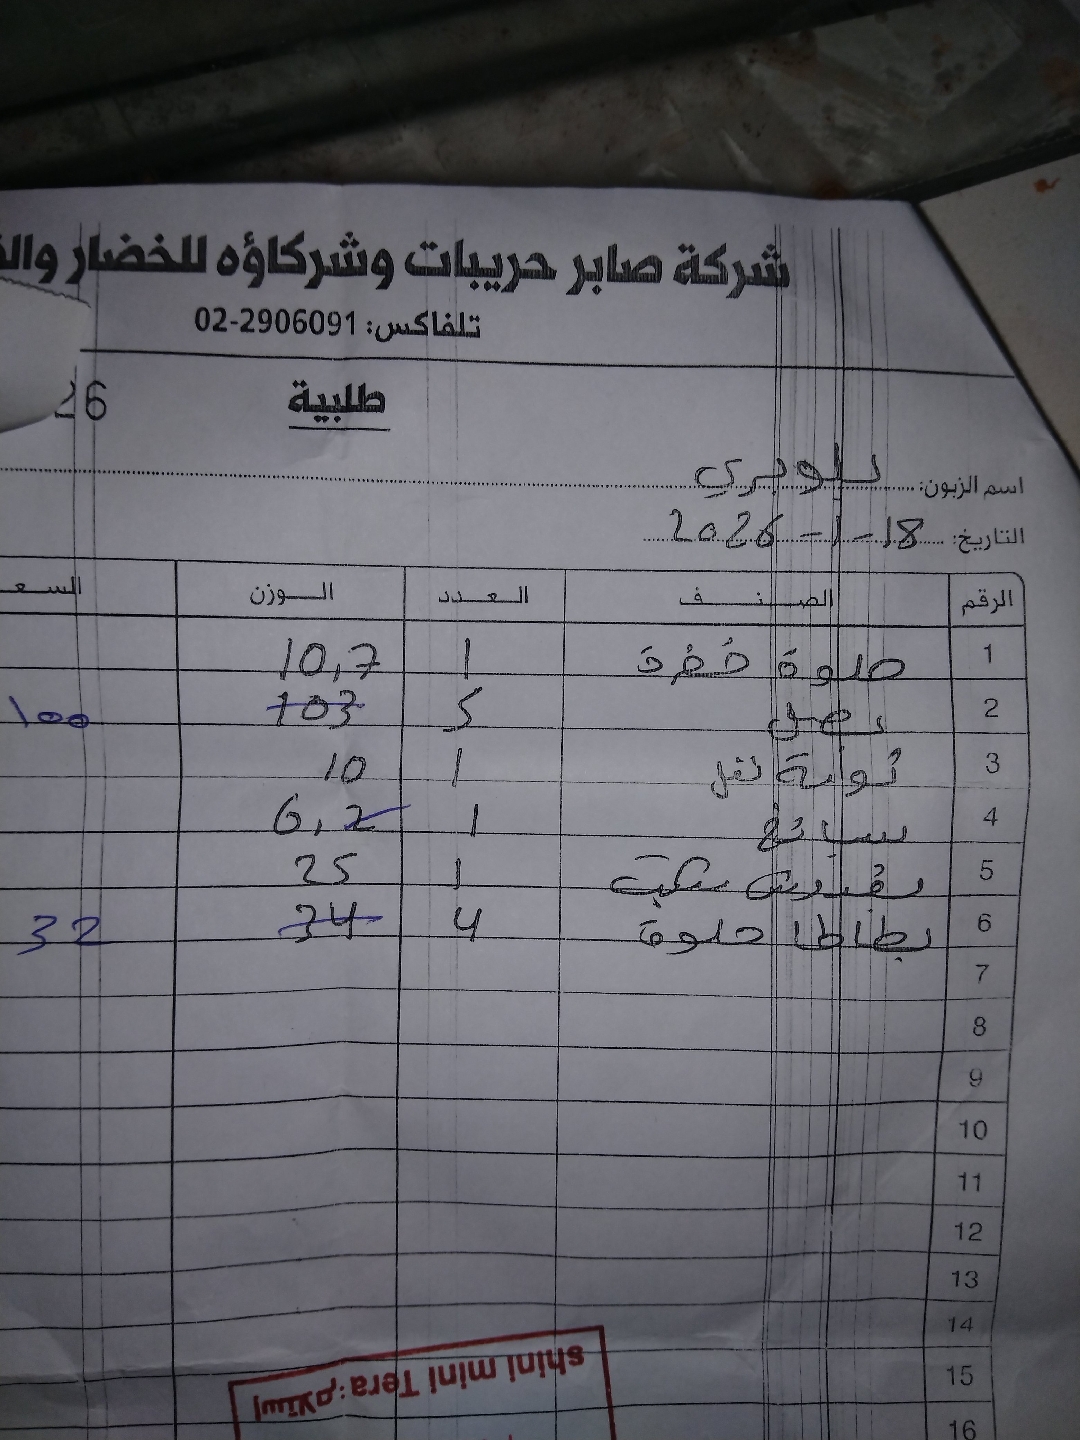 شركة صابر حريبات وشركاؤه للخضار
تلفاكس: 02-2906091
طلبية
26
اسم الزبون: بلوبري
التاريخ: 18-1-2026
الرقم الصنف العدد الوزن السعـ
1 حلوة خضرة 1 10,7
2 بصل 5 103 ١٠٠
3 1 10
4 سبانخ 1 6,2
5 1 25
6 بطاطا حلوة 4 34 32
7
8
9
10
11
12
13
14
15
16
shini mini Tera
إستلام: